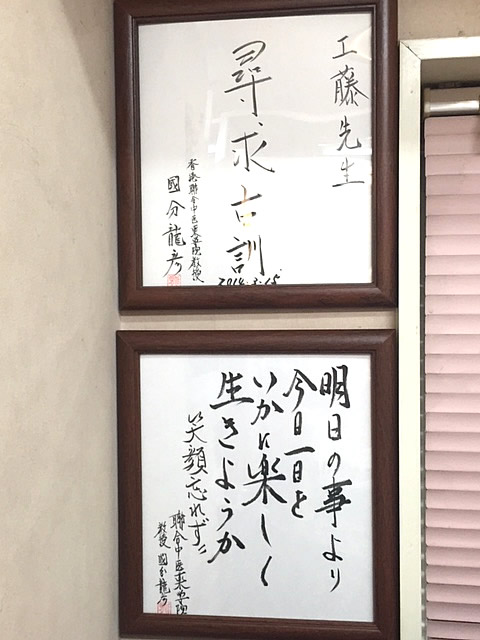 工藤先生
尋求古訓
香港聯合中医薬学院教授
國分龍彦
2014.3.15
明日の事より
今日一日を
いかに楽しく
生きようか
笑顔忘れずに
聯合中医薬学院
教授 國分龍彦